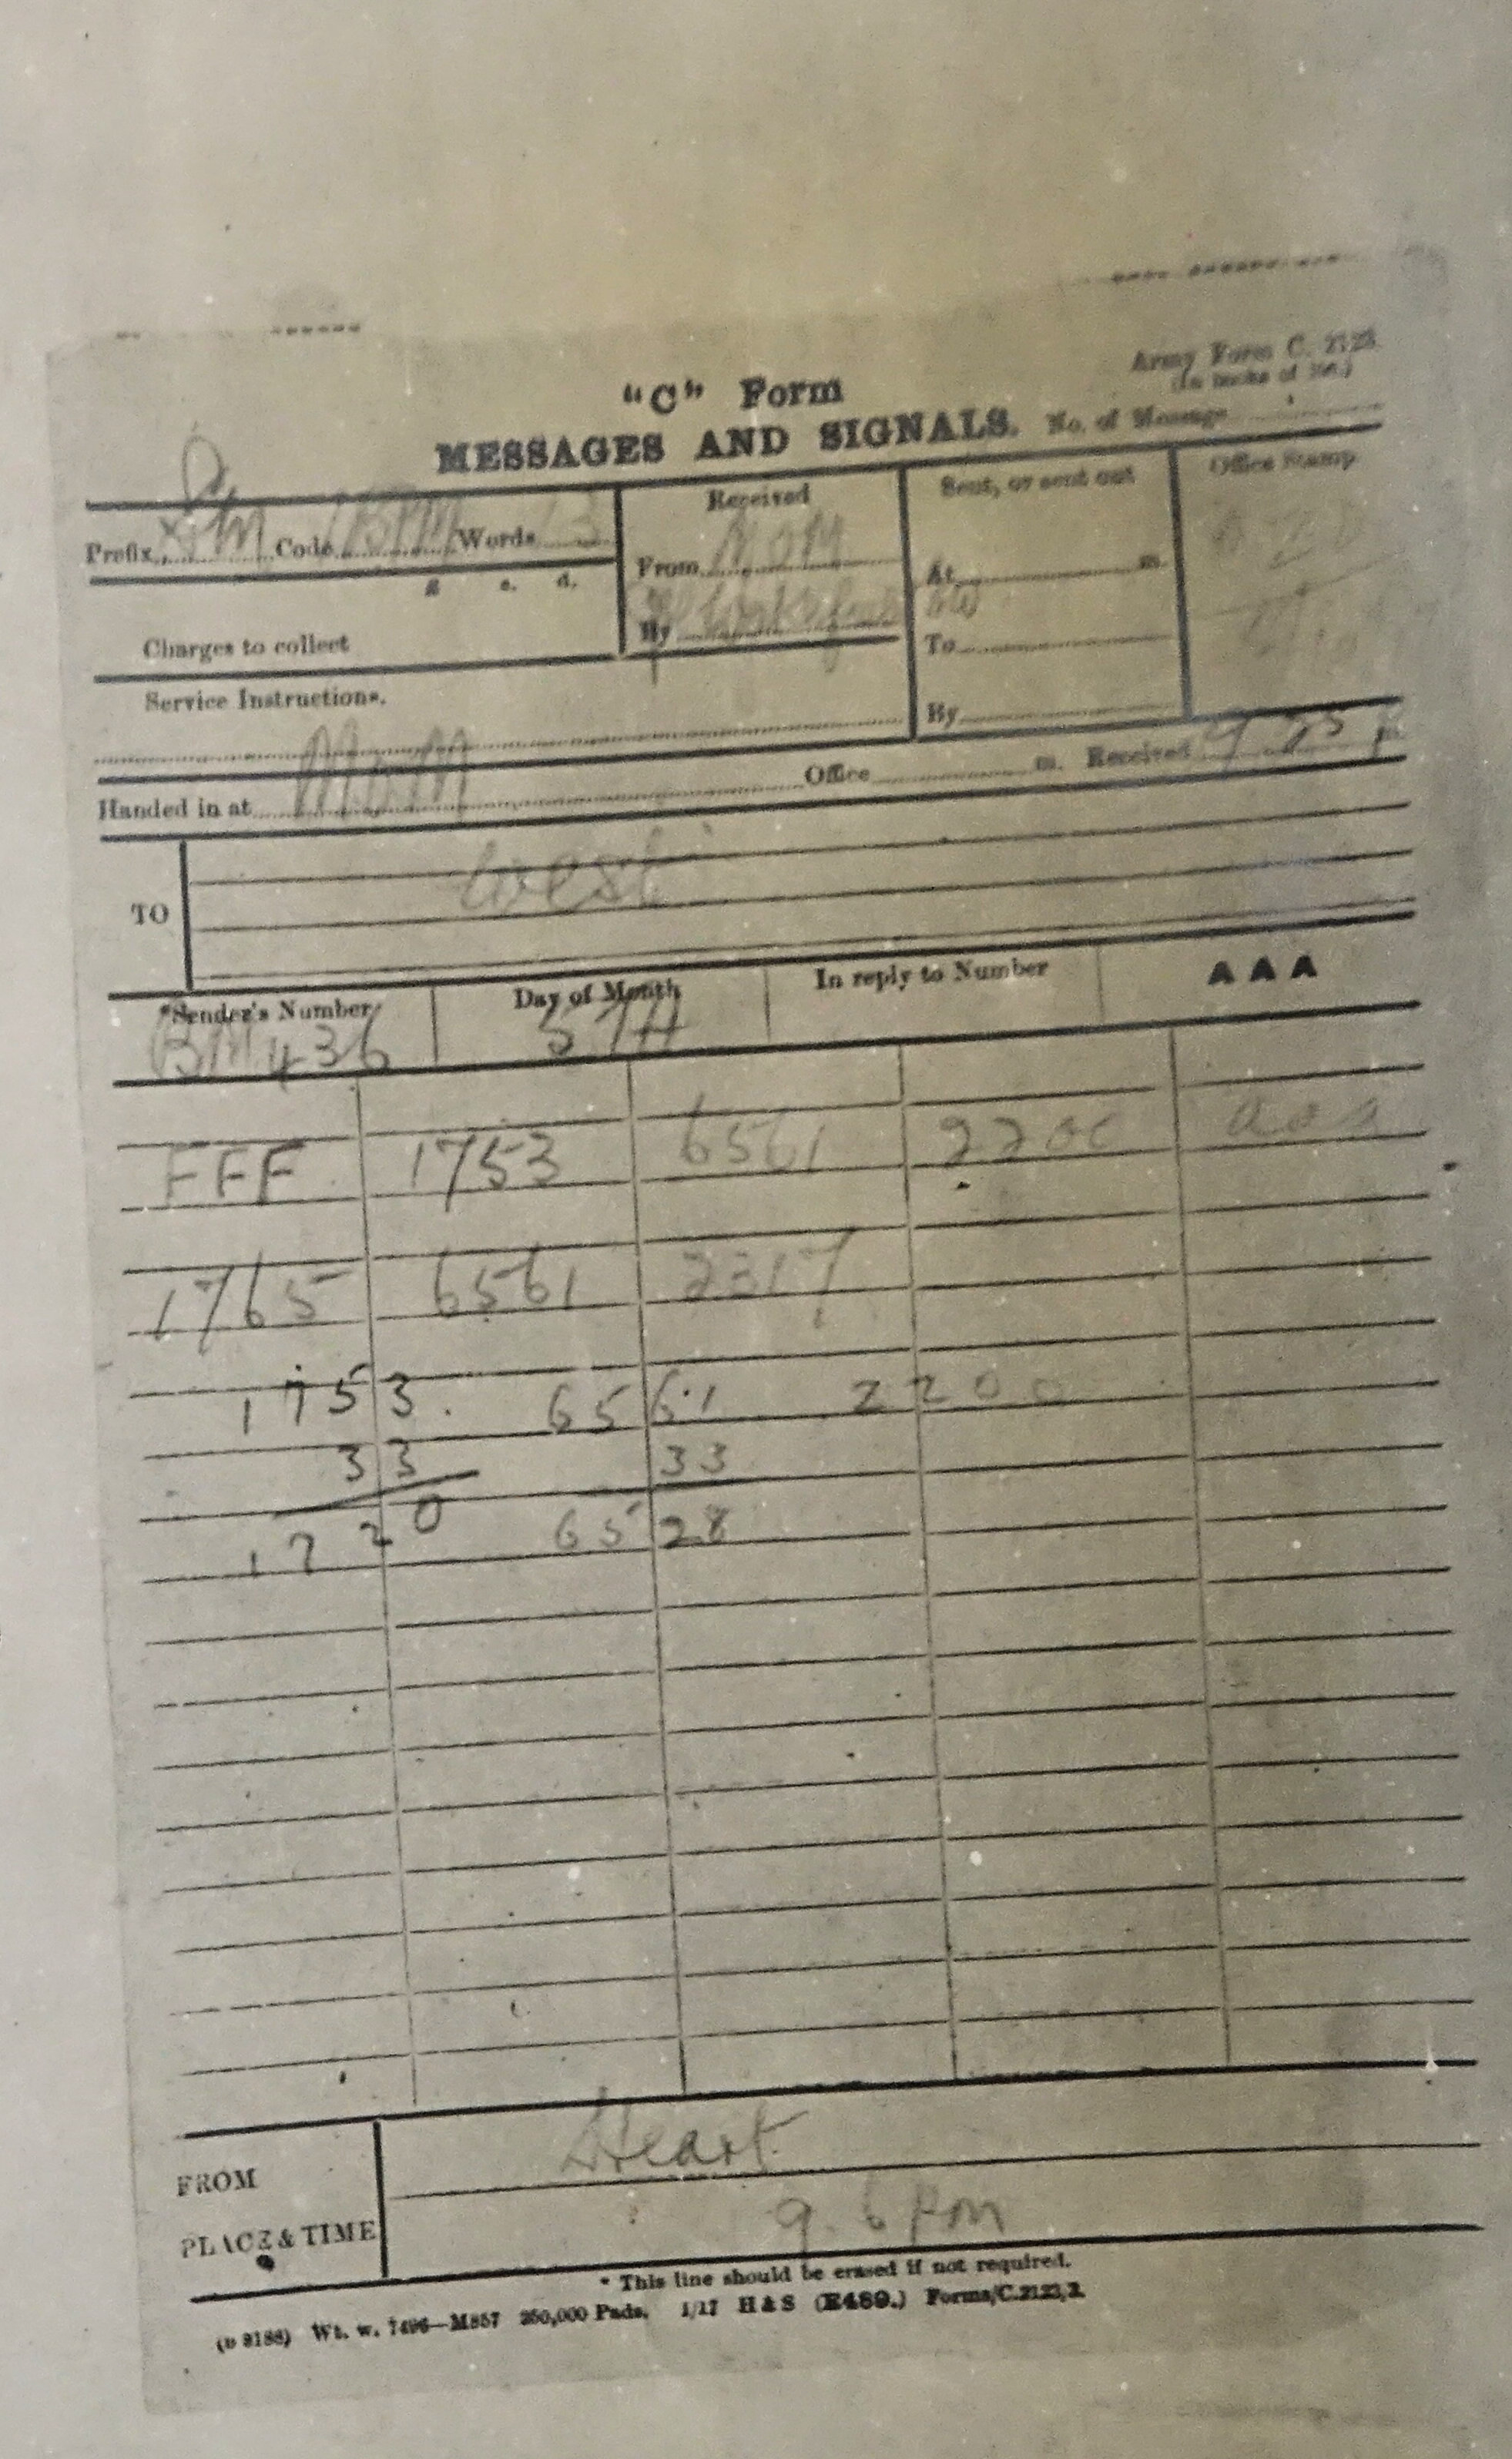 Army Form C. 2123.
(In books of 100.)
"C" Form
MESSAGES AND SIGNALS. No. of Message
Prefix Sm Code BM Words 13
Received
From
By
Sent, or sent out
At m.
To
By
Office Stamp
£ s. d.
Charges to collect
Service Instructions.
Handed in at Office m. Received 9 25 p m.
TO West
*Sender's Number Day of Month In reply to Number AAA
BM 436 5TH
FFF 1753 6561 2200 aaa
1765 6561 2317
1753. 6561 2200
33 33
1720 6528
FROM Heart
PLACE & TIME 9. 6 pm
* This line should be erased if not required.
Wt. w. 7496—M857 250,000 Pads. 1/17 H & S (E489.) Forms/C.2123/3.